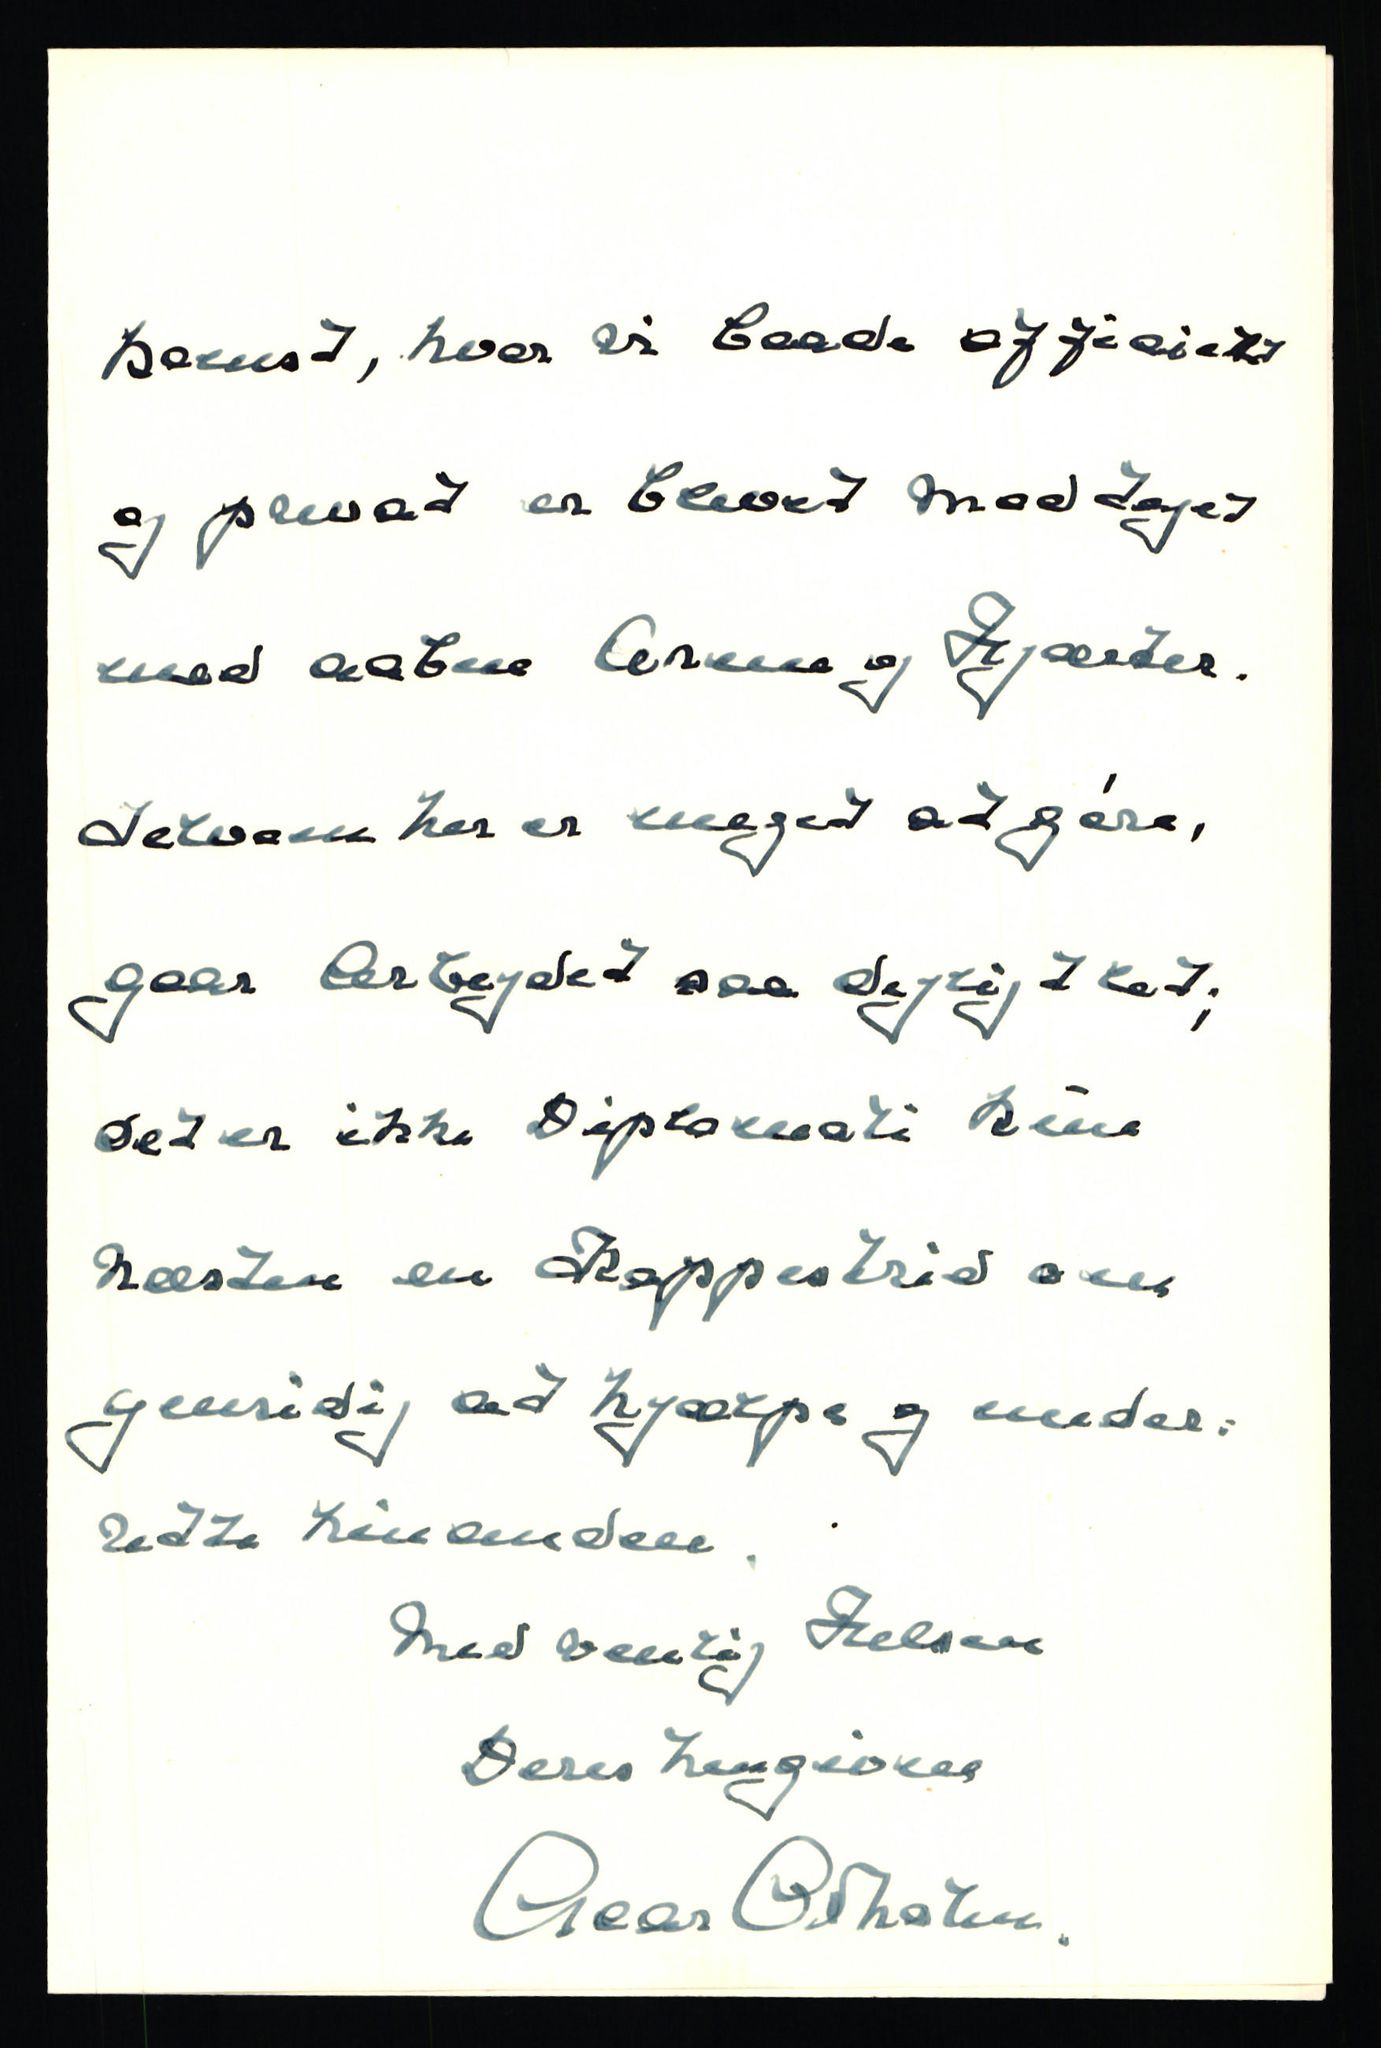 komst, hvor vi baade officielt
og privat er blevet modtaget
med aabne Arme og Hjærter.
Selvom her er meget at gøre,
gaar Arbejdet saa dejligt let;
det er ikke Diplomati kun
næsten en Kappestrid om
gensidig at hjælpe og under:
rette hinanden.
Med venlig Hilsen
Deres hengivne
Oscar Oxholm.